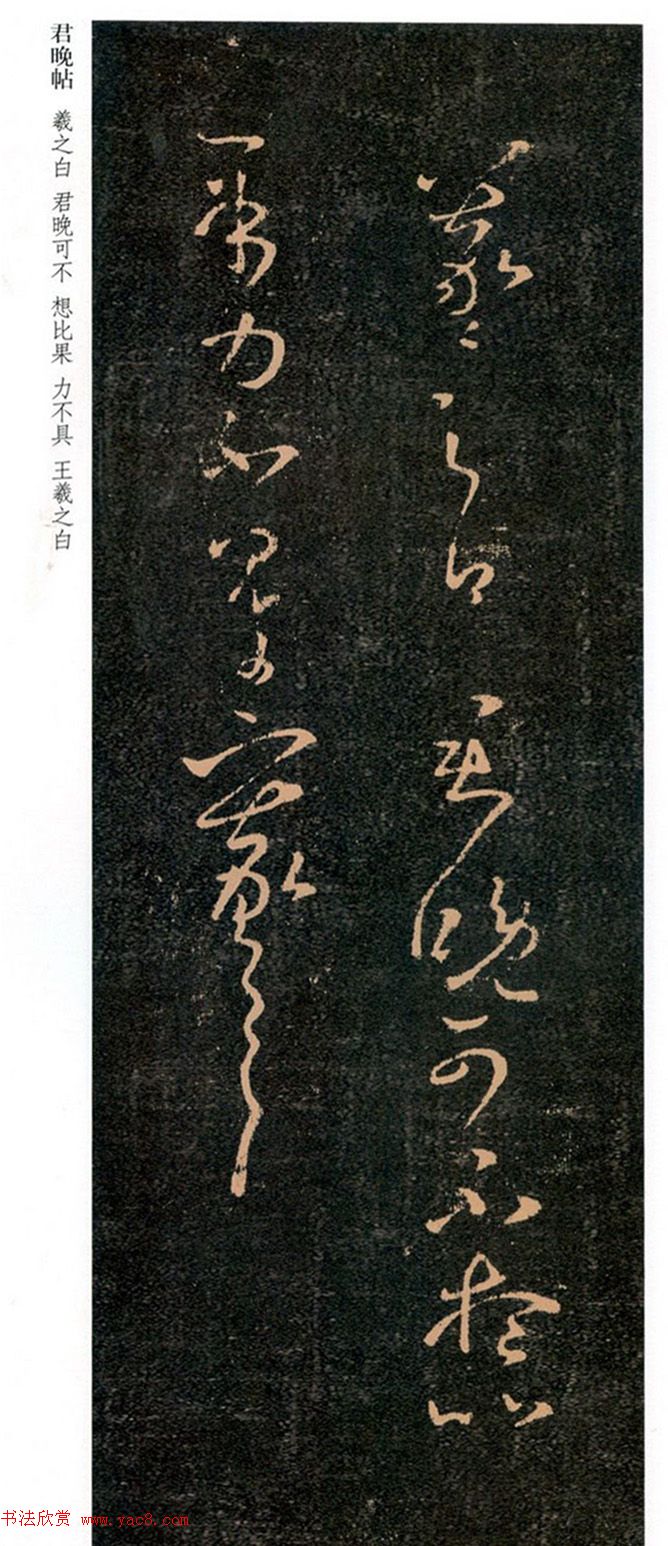 君晚帖 羲之白 君晚可不 想比果 力不具 王羲之白
羲之白君晚可不想比
果力不具王羲之白
书法欣赏 www.yac8.com